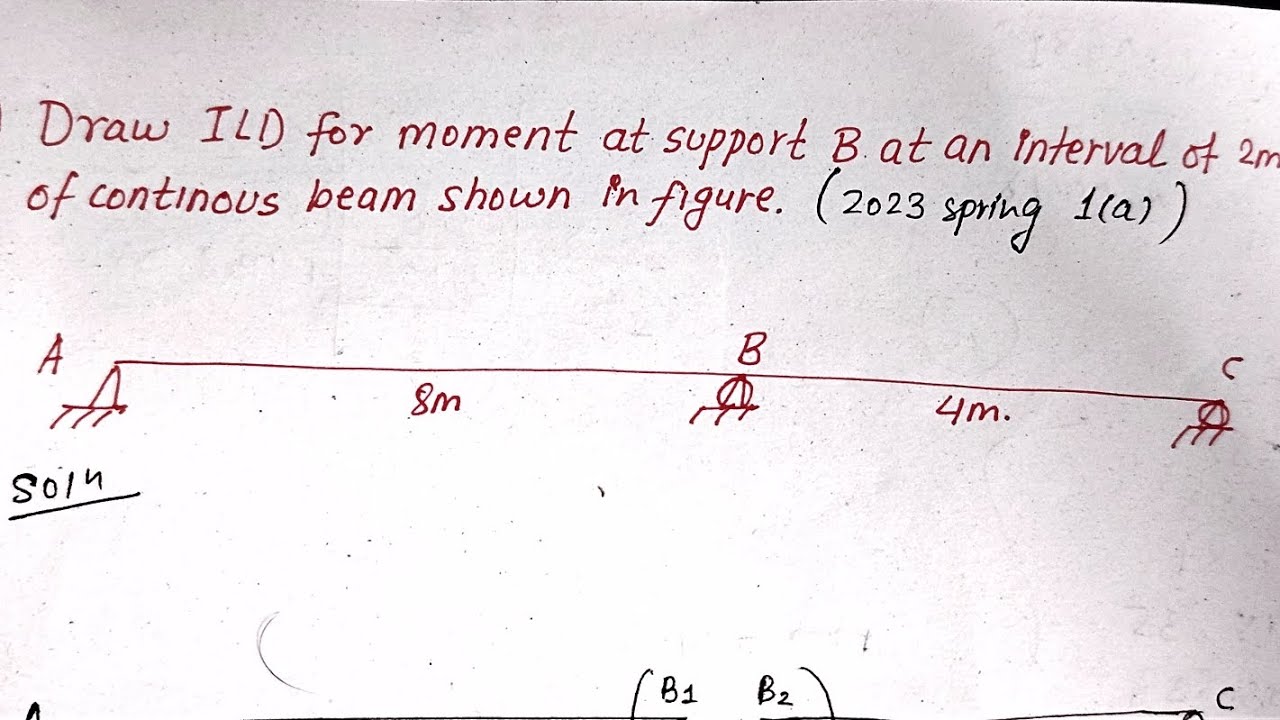 Draw ILD for moment at support B at an interval of 2m
of continous beam shown in figure. (2023 spring 1(a))
A B C
8m 4m.
Soln
B1 B2 C
A